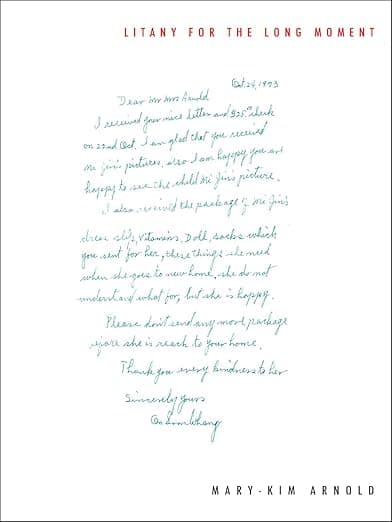 LITANY FOR THE LONG MOMENT
Oct. 24, 1973
Dear Mr Mrs Arnold
I received your nice letter and $25.00 check
on 22nd Oct. I am glad that you received
Mi Jin's pictures, also I am happy you are
happy to see the child Mi Jin's picture.
I also received the package of Mi Jin's
dress slip, Vitamins, Doll, socks which
you sent for her, these things she need
when she goes to new home, she do not
understand what for, but she is happy.
Please don't send any more package
before she is reach to your home.
Thank you every kindness to her
Sincerely yours
Whang
MARY-KIM ARNOLD